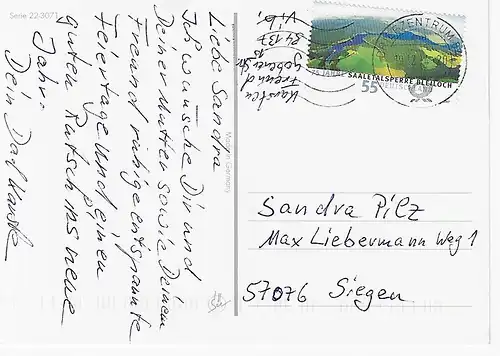 Serie 22-3071
Liebe Sandra
Ich wünsche Dir und
Deiner Mutter sowie Deinem
Freund ruhige entspannte
Feiertage und einen
guten Rutsch ins neue
Jahr.
Dein Dad Karsten
Made in Germany
Karsten
Freund
Str.
24137
75 JAHRE SAALETALSPERRE BLEILOCH
55
DEUTSCHLAND
BRIEFZENTRUM
Sandra Pilz
Max Liebermann Weg 1
57076 Siegen